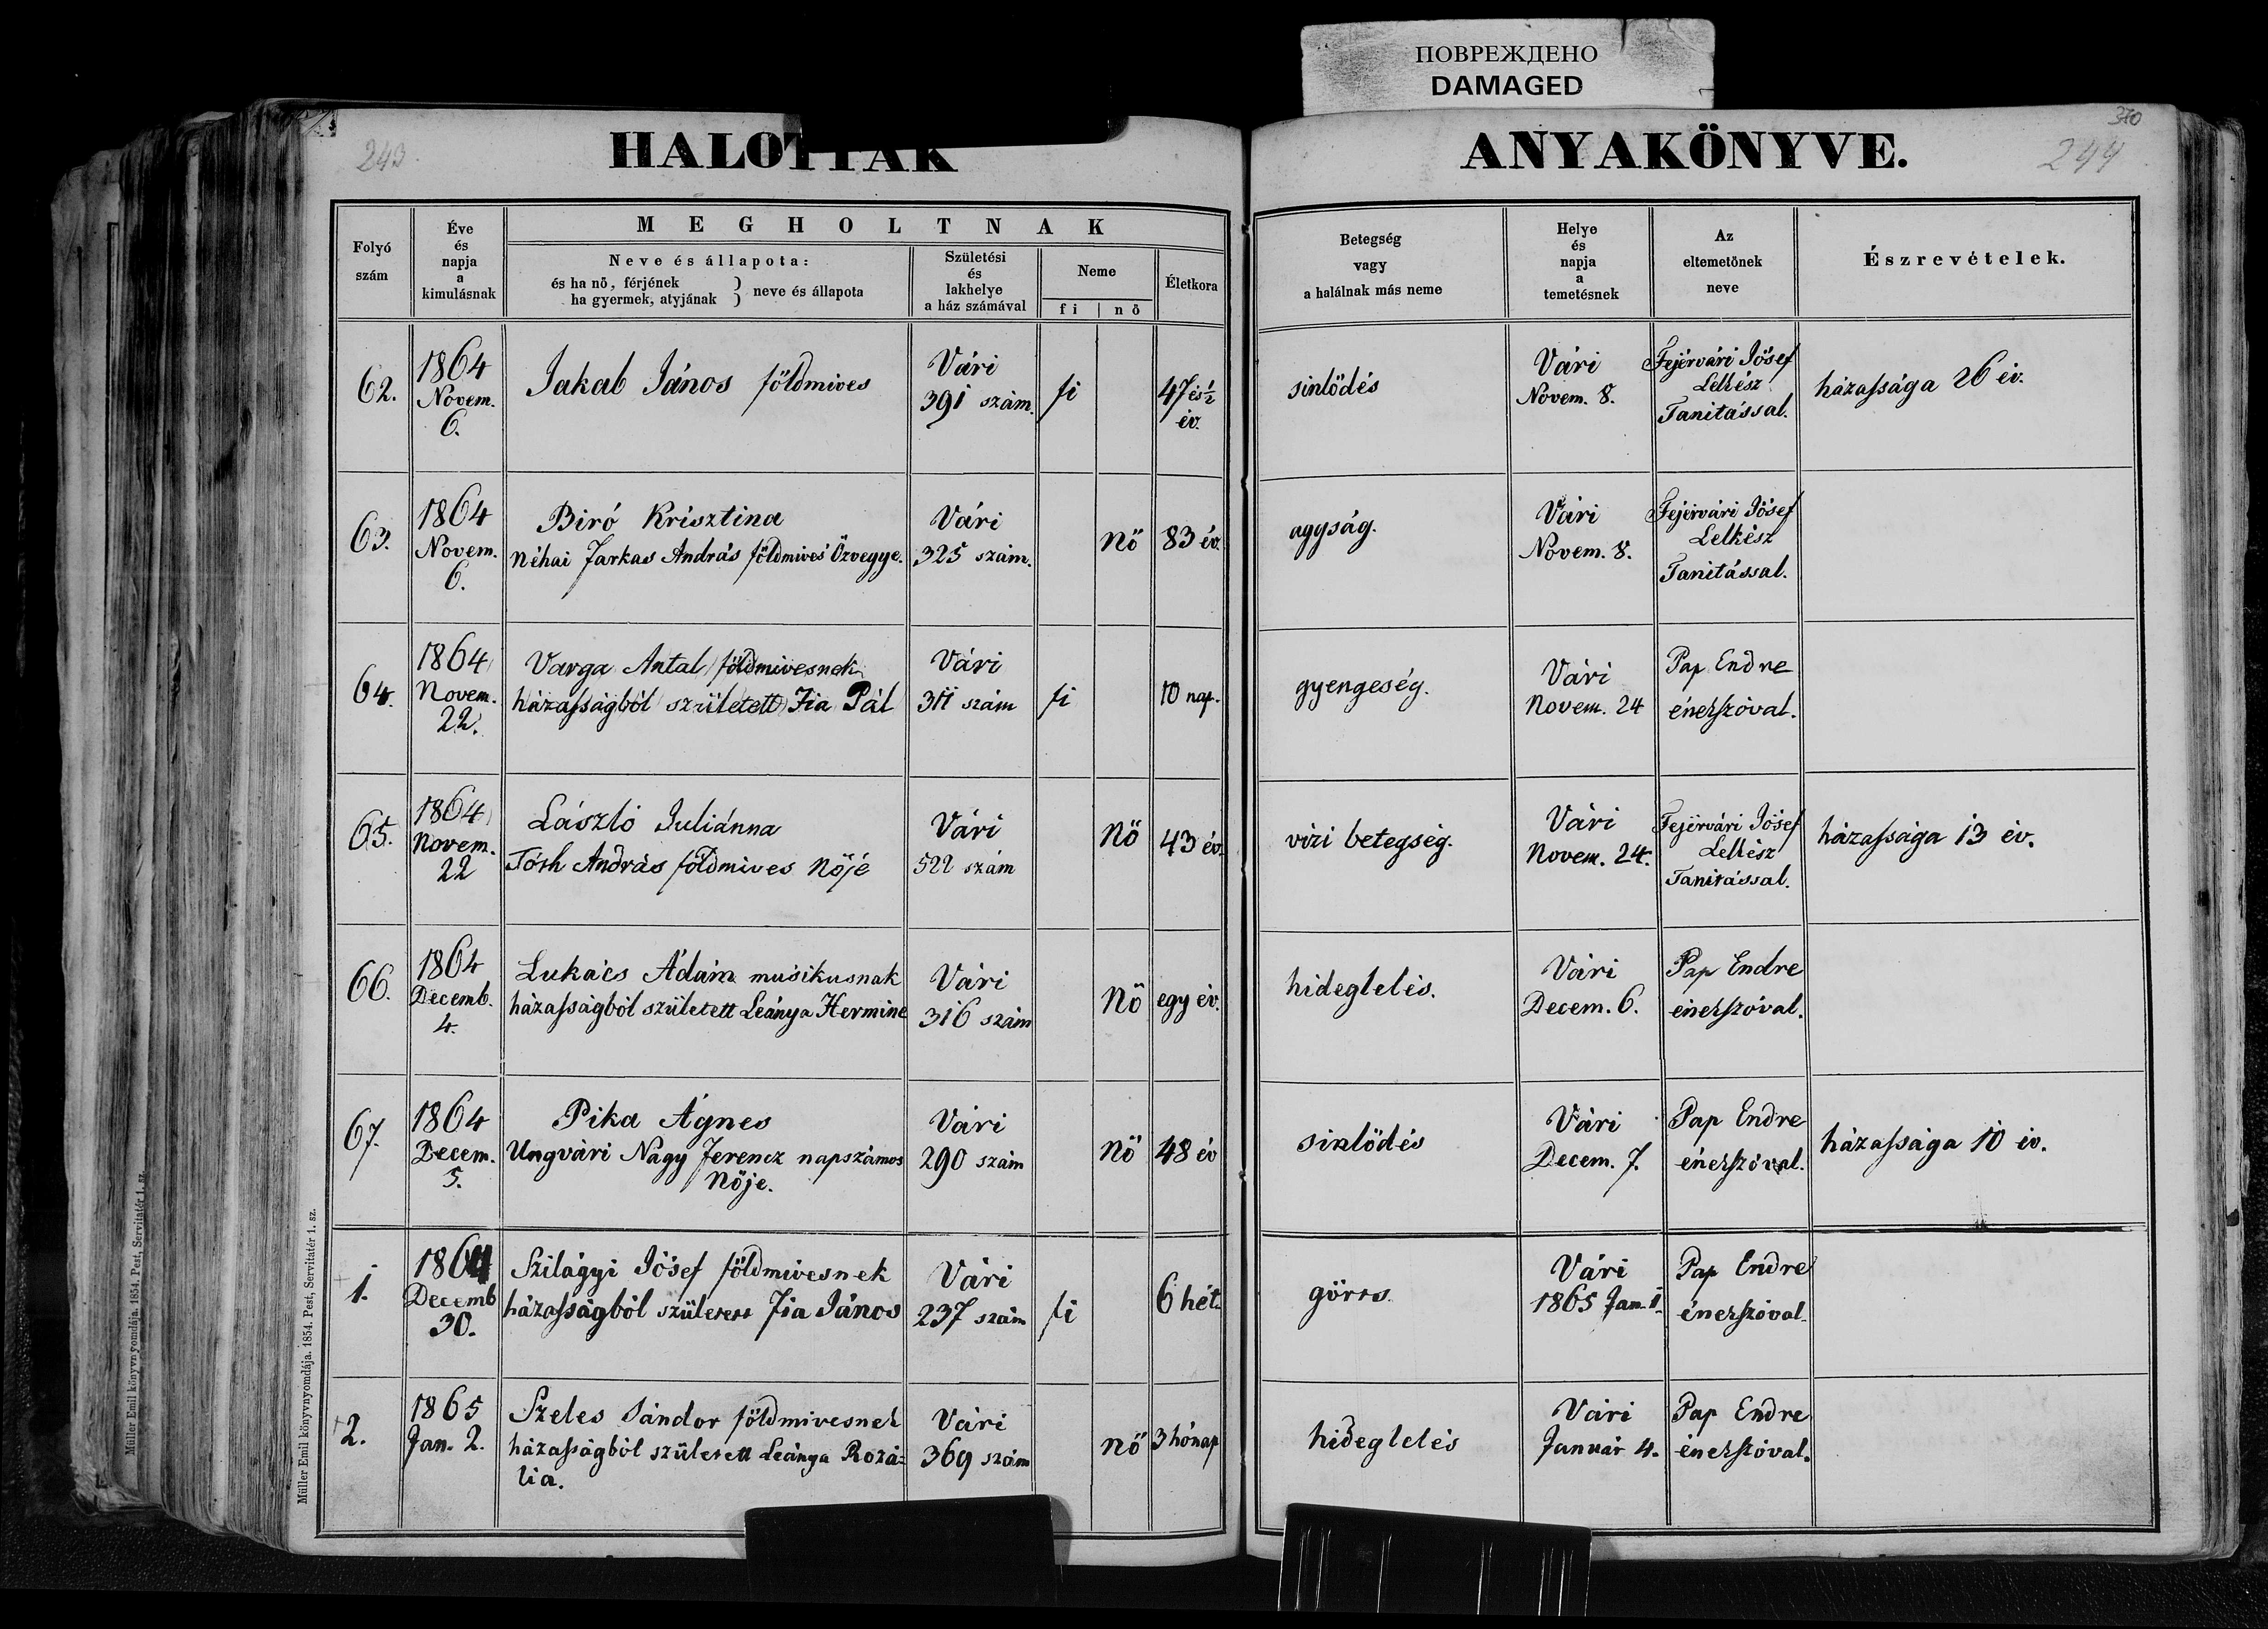 ПОВРЕЖДЕНО
DAMAGED
370
243.
HALOTTAK
ANYAKÖNYVE.
244
Folyó
szám
Éve
és
napja
a
kimulásnak
MEGHOLTNAK
Neve és állapota:
és ha nő, férjének
ha gyermek, atyjának
neve és állapota
Születési
és
lakhelye
a ház számával
Neme
fi | nő
Életkora
Betegség
vagy
a halálnak más neme
Helye
és
napja
a
temetésnek
Az
eltemetőnek
neve
Észrevételek.
62.
1864
Novem.
6.
Jakab János földmives
Vári
391 szám.
fi
47 és ½
év.
sinlődés
Vári
Novem. 8.
Fejérvári Jósef
Lelkész
Tanitással.
házassága 26 év.
63.
1864
Novem.
6.
Biró Krisztina
Néhai Farkas András földmives Özvegye.
Vári
325 szám.
nő
83 év.
agyság.
Vári
Novem. 8.
Fejérvári Jósef
Lelkész
Tanitással.
64.
1864
Novem.
22.
Varga Antal földmivesnek
házasságból született Fia Pál
Vári
311 szám
fi
10 nap.
gyengeség.
Vári
Novem. 24
Pap Endre
énekszóval.
65.
1864
Novem.
22
László Juliánna
Tóth András földmives Nőjé
Vári
522 szám
Nő
43 év.
vizi betegség.
Vári
Novem. 24.
Fejérvári Jósef
Lelkész
Tanitással.
házassága 13 év.
66.
1864
Decemb.
4.
Lukács Ádám musikusnak
házasságból született Leánya Hermine
Vári
316 szám
Nő
egy év.
hideglelés.
Vári
Decem. 6.
Pap Endre
énekszóval.
67.
1864
Decem.
5.
Pika Ágnes
Ungvári Nagy Ferencz napszámos
Nője.
Vári
290 szám
nő
48 év
sinlődés
Vári
Decem. 7.
Pap Endre
énekszóval.
házassága 10 év.
1.
1864
Decemb
30.
Szilágyi Jósef földmivesnek
házasságból született Fia János
Vári
237 szám
fi
6 hét.
görts.
Vári
1865 Jan. 1.
Pap Endre
énekszóval.
2.
1865
Jan. 2.
Szeles Sándor földmivesnek
házasságból született Leánya Rozá-
lia.
Vári
369 szám
nő
3 hónap
hideglelés
Vári
Január 4.
Pap Endre
énekszóval.
Müller Emil könyvnyomdája. 1854. Pest, Servitatér 1. sz.
Müller Emil könyvnyomdája. 1854. Pest, Servitatér 1. sz.